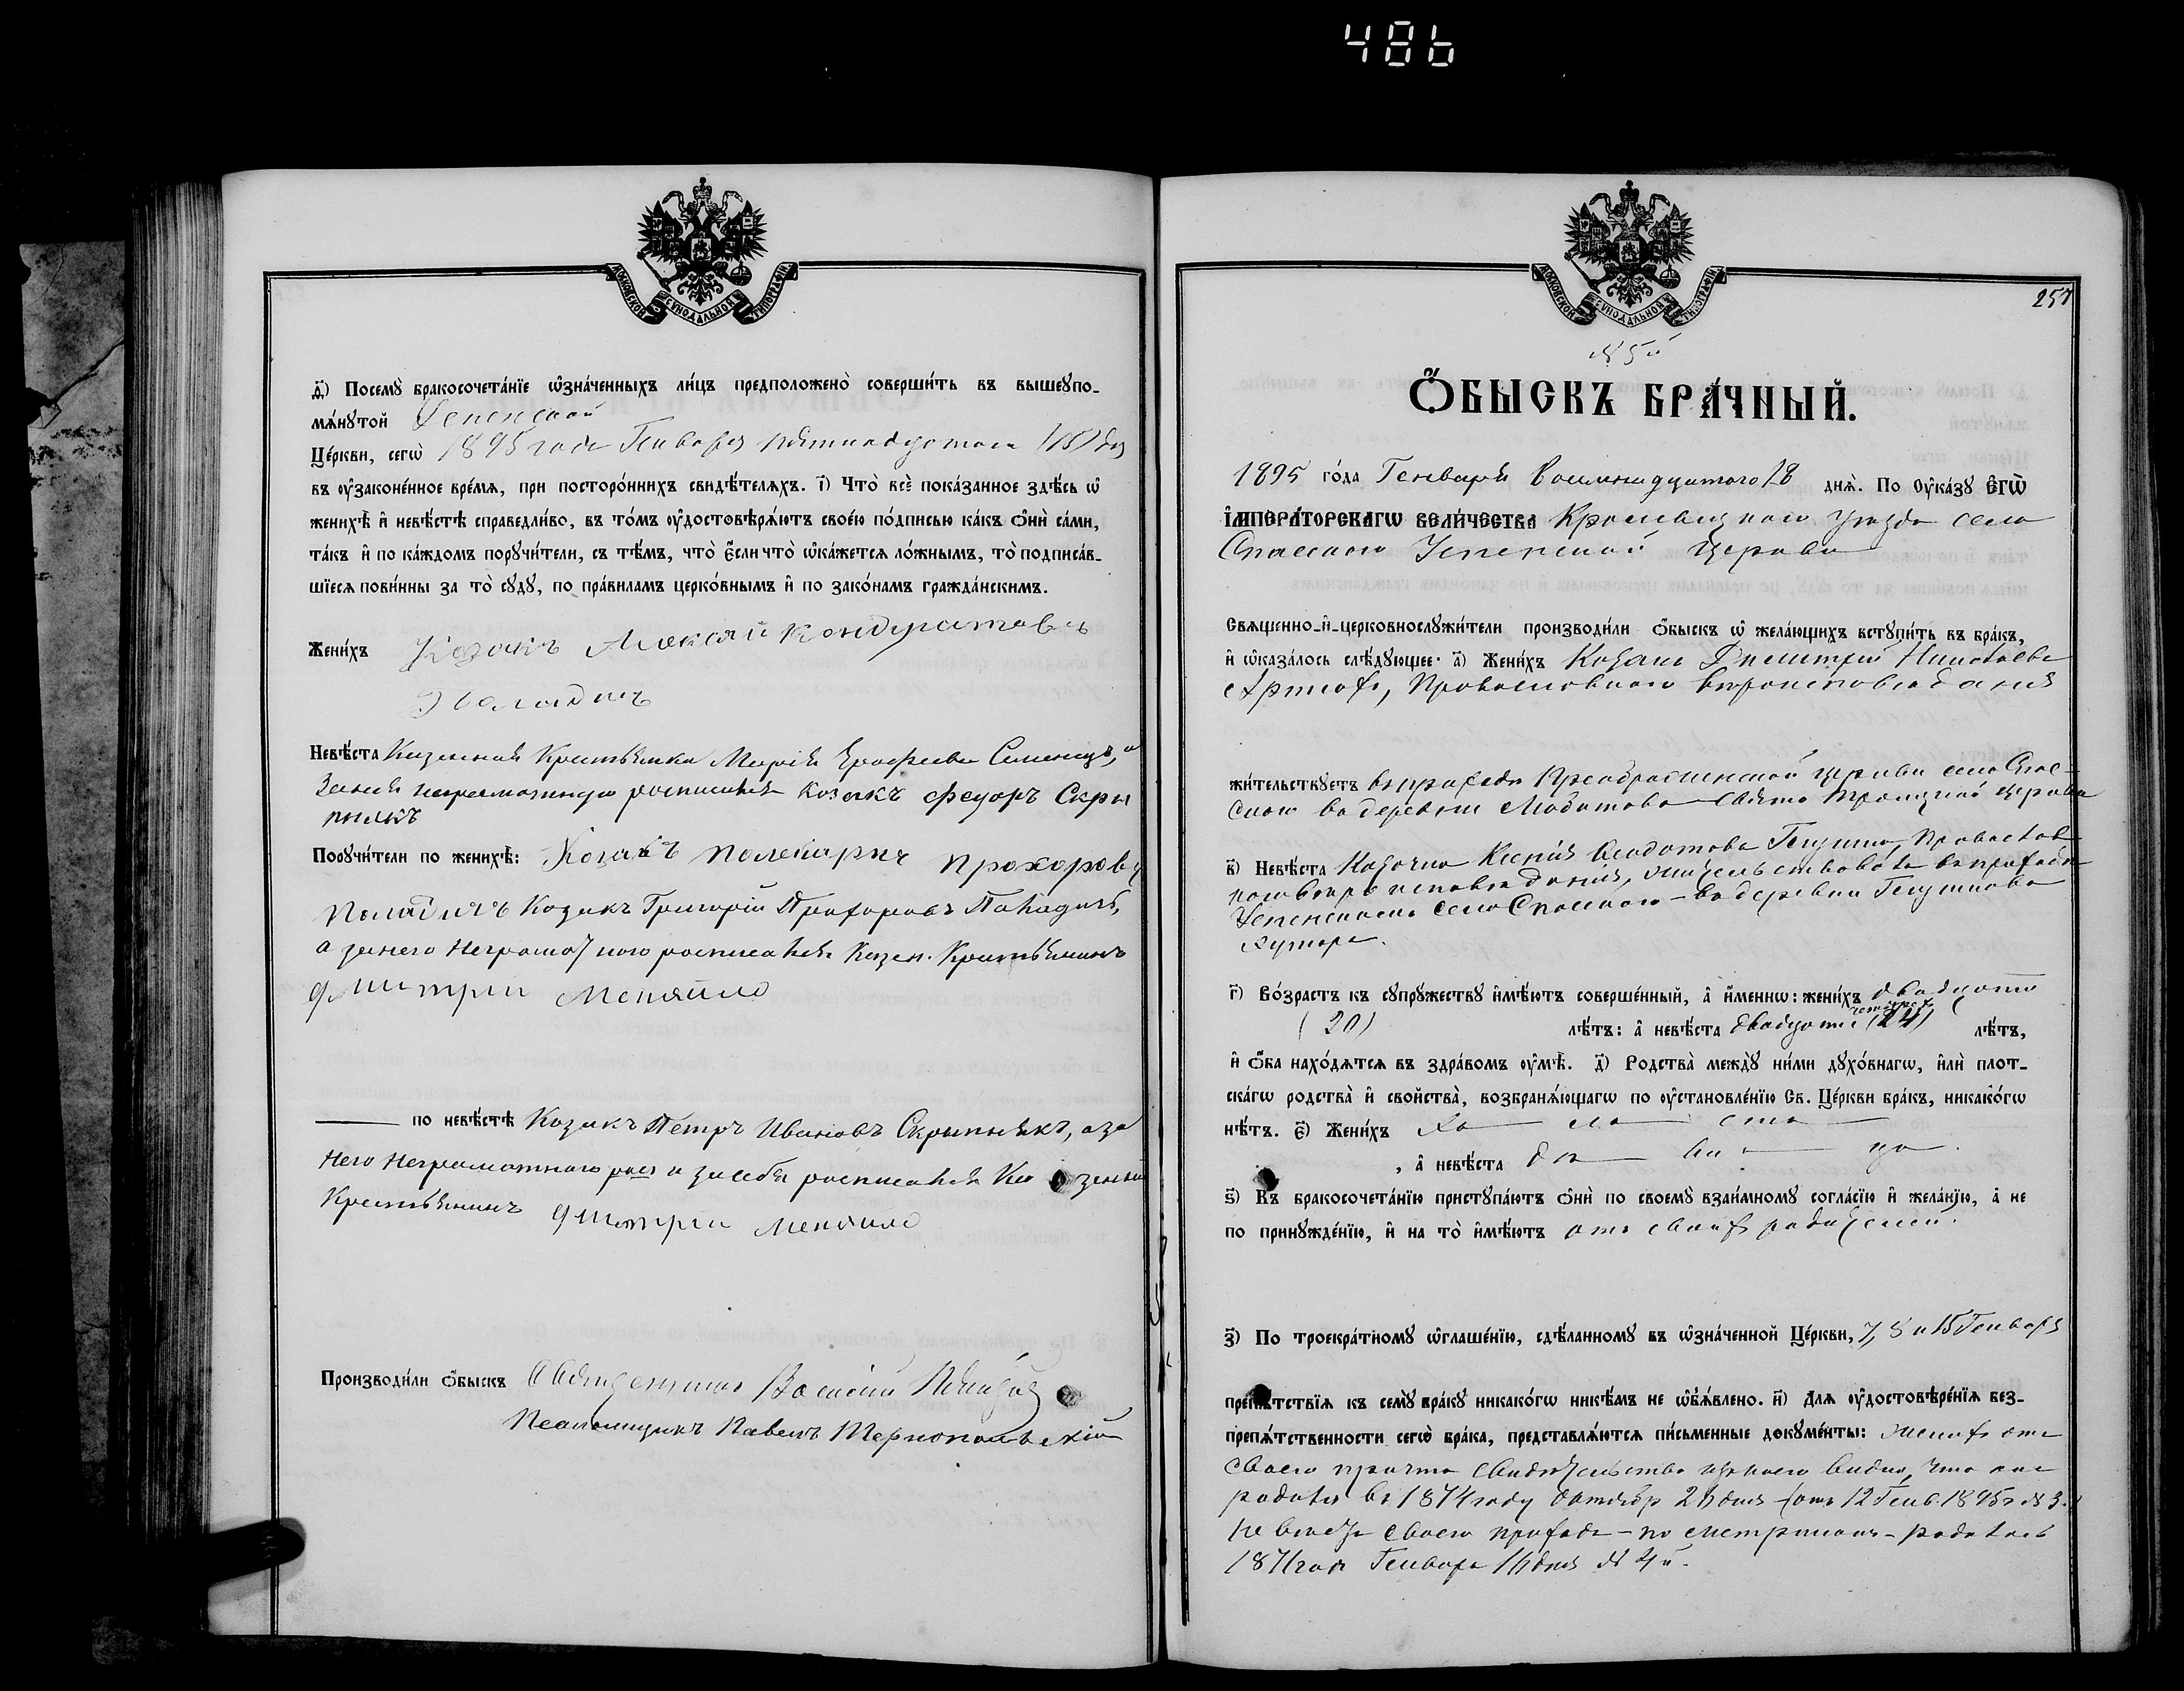 486
МОСКОВСКОЙ СѴНОДАЛЬНОЙ ТИПОГРАФІИ
д҃) Посемꙋ̀ бракосочета́нїе ѡ҆зна́ченныхъ ли́цъ предположено̀ соверши́ть въ вышеꙋпо-
мѧ́нꙋтой Успенской
Це́ркви, сегѡ̀ 1895 года Генваря пятнадцатого (15) дня
въ ᲂу҆законе́нное вре́мѧ, при посторо́ннихъ свидѣ́телѧхъ. і҃) Что̀ всѐ пока́занное здѣ́сь ѡ҆
женихѣ̀ и҆ невѣ́стѣ справедли́во, въ то́мъ ᲂу҆достовѣрѧ́ютъ свое́ю по́дписью ка́къ ѻ҆нѝ са́ми,
та́къ и҆ по ка́ждомъ порꙋчи́тели, съ тѣ́мъ, что̀ є҆́сли что̀ ѡ҆ка́жетсѧ ло́жнымъ, то̀ подписа́в-
шїесѧ пови́нны за то̀ сꙋдꙋ̀, по пра́виламъ церко́внымъ и҆ по зако́намъ гражда́нскимъ.
Жени́хъ Козакъ Алексей Кондратовъ
Паладичъ
Невѣ́ста Казенная Крестьянка Марія Ерофеева Семенецъ, а
За нея неграмотную росписался Козакъ Федоръ Скры
пникъ
Порꙋчи́тели по женихѣ̀: Козакъ Поликарпъ Прохоровъ
Паладичъ Козакъ Григорій Прохоровъ Паладичъ,
а за него Неграмотного росписался Казен. Крестьянинъ
Дмитрій Меняйло
по невѣ́стѣ Козакъ Петръ Ивановъ Скрыпникъ, а за
Него Неграмотного рос и за себя росписался Казенный
Крестьянинъ Дмитрій Меняйло
Производи́ли ѻ҆́быскъ Священникъ Василій
Псаломщикъ Павелъ Тернопольскій
МОСКОВСКОЙ СѴНОДАЛЬНОЙ ТИПОГРАФІИ
257
№ 5й
Ѻ҆́БЫСКЪ БРА́ЧНЫЙ.
1895 го́да Генваря Восемнадцатого 18 днѧ̀. По ᲂу҆ка́зꙋ Є҆ГѠ̀
І҆МПЕРА́ТОРСКАГѠ ВЕЛИ́ЧЕСТВА Кролевецкого уезда села
Спасского Успенской Церкви
Свѧщенно-и҆-церковнослꙋжи́тели производи́ли ѻ҆́быскъ ѡ҆ жела́ющихъ встꙋпи́ть въ бра́къ,
и҆ ѡ҆каза́лось слѣ́дꙋющее: а҃) Жени́хъ Козакъ Дмитрій Николаевъ
Артюхъ, Православного вероисповеданія
жи́тельствꙋетъ въ приходе Преображенской церкви села Спас-
ского въ деревне Свято Троицкой церкви
в҃) Невѣ́ста Козачка Ксенія Федотова Глушко, Православ
ного вероисповеданія, жительствовала въ приходе
Успенскомъ села Спасского - въ деревни Глушковъ
хуторе.
г҃) Во́зрастъ къ сꙋпрꙋ́жествꙋ и҆мѣ́ютъ соверше́нный, а҆ и҆́меннѡ: жени́хъ двадцати
(20) лѣ́тъ: а҆ невѣ́ста двадцати четырехъ (24) лѣ́тъ,
и҆ ѻ҆́ба нахо́дѧтсѧ въ здра́вомъ ᲂу҆мѣ̀. д҃) Родства̀ междꙋ̀ ни́ми дꙋхо́внагѡ, и҆лѝ плот-
ска́гѡ родства̀ и҆ свойства̀, возбранѧ́ющагѡ по ᲂу҆становле́нїю Св. Це́ркви бра́къ, никако́гѡ
нѣ́тъ. є҃) Жени́хъ хо — ло — ста
, а҆ невѣ́ста дѣ — ви — ца.
ѕ҃) Къ бракосочета́нїю пристꙋпа́ютъ ѻ҆нѝ по своемꙋ̀ взаи́мномꙋ согла́сїю и҆ жела́нїю, а҆ не
по принꙋжде́нїю, и҆ на то̀ и҆мѣ́ютъ отъ своихъ родителей.
з҃) По троекра́тномꙋ ѡ҆глаше́нїю, сдѣ́ланномꙋ въ ѡ҆зна́ченной Це́ркви, 7, 8 и 15 Генваря
препѧ́тствїѧ къ семꙋ̀ бра́кꙋ никако́гѡ никѣ́мъ не ѡ҆б̾ѧ́влено. и҃) Для ᲂу҆достовѣре́нїѧ без-
препѧ́тственности сегѡ̀ бра́ка, представлѧ́ютсѧ пи́сьменные докꙋме́нты: жених отъ
своего причта свидетельство изъ коего видно, что онъ
родился въ 1874 году Октября 21 дня (отъ 12 Генв. 1895 г № 3.)
невеста своего прихода - по метрикамъ - родилась
1871 года Генваря 11 дня № 4й.